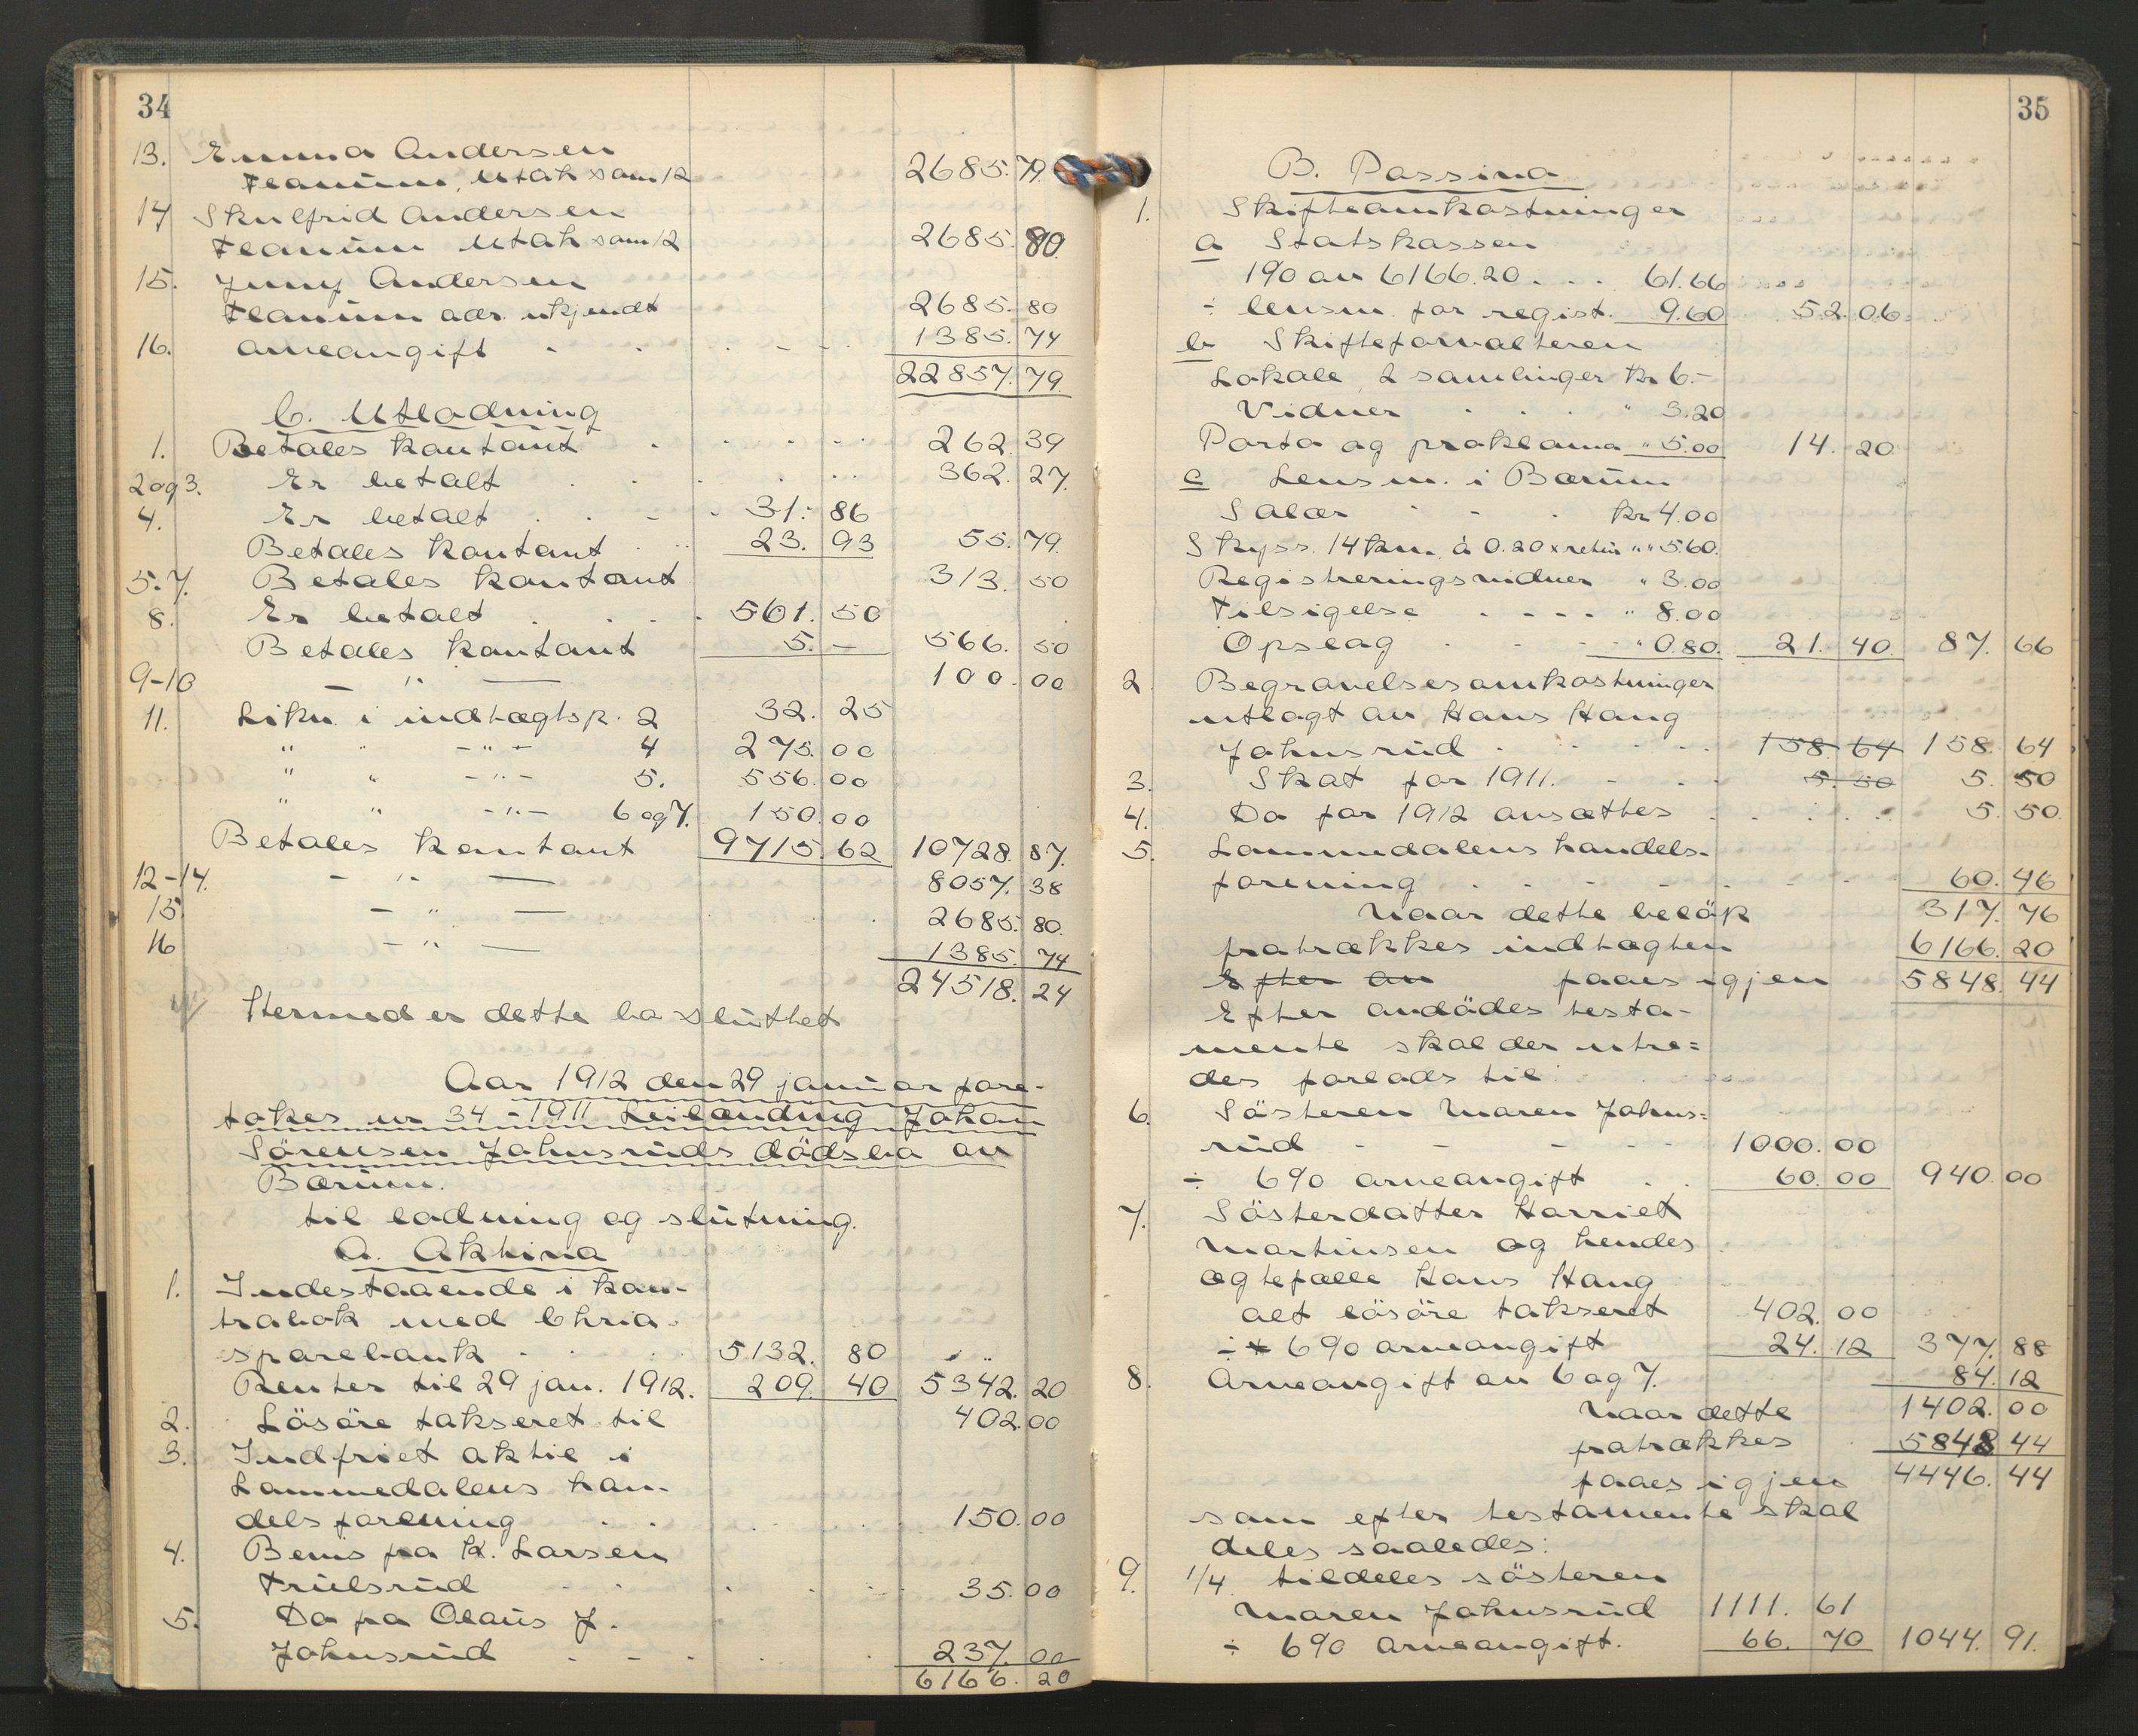 34
13. Emma Andersen
Teanum, Utah som 12 2685. 79.
14 Skulfrid Andersen
Teanum Utah som 12 2685. 80
15. Jenny Andersen
Teanum adr. ukjendt 2685. 80
16. Arveavgift 1385. 74
22857. 79.
C. Utlodning
1. Betales kontant 262. 39
2 og 3. Er betalt 362. 27.
4. Er betalt 31. 86
Betales kontant 23. 93 55. 79.
5.7. Betales kontant 313. 50
8. Er betalt 561. 50
Betales kontant 5. — 566. 50
9-10 — " — 100. 00
11. Likv. i indtægtsp. 2 32. 25
" " -"- 4 275. 00
" " -"- 5. 556. 00
" " -"- 6 og 7. 150. 00
Betales kontant 9715. 62 10728. 87.
12-14. — " — 8057. 38
15. — " — 2685. 80.
16 — " — 1385. 74
24518. 24
Hermed er dette bo sluttet
Aar 1912 den 29 januar fore-
tokes nr 34-1911 Leilænding Johan
Sörensen Johnsruds dödsbo av
Bærum.
til lodning og slutning.
A. Aktiva
1. Indestaaende i kon-
trabok med Chria.
sparebank 5132. 80
Renter til 29 jan. 1912. 209. 40 5342. 20
2. Lösöre takseret til 402. 00
3. Indfriet aktie i
Lommedalens han-
delsforening 150. 00
4. Bevis fra K. Larsen
Trulsrud 35. 00
5. Do fra Olaus J.
Johnsrud 237. 00
6166. 20
35
B. Passiva
1. Skifteomkostninger
a Statskassen
1% av 6166.20 61.66
÷ lensm. for regist. 9.60 52. 06
b Skifteforvalteren
Lokale, 2 samlinger kr 6.-
Vidner " 3.20
Porto og proklama " 5.00 14. 20
c Lensm. i Bærum
Salær kr 4.00
Skyss. 14 km. à 0.20 x retur " 5.60.
Registreringsvidner " 3.00
Tilsigelse " 8.00
Opslag " 0.80. 21. 40. 87. 66
2. Begravelsesomkostninger
utlagt av Hans Haug
Johnsrud 158. 64 158. 64
3. Skat for 1911. 5. 50 5. 50
4. Do for 1912 ansættes 5. 50.
5. Lommedalens handels-
forening 60. 46
Naar dette belöp 317. 76
fratrækkes indtægten 6166. 20
Efter av faaes igjen 5848. 44
Efter avdödes testa-
mente skal der utre=
des forlods til:
6. Sösteren Maren Johns=
rud 1000. 00
÷ 6% arveavgift 60. 00 940. 00
7. Sösterdatter Harriet
Martinsen og hendes
ægtefælle Hans Haug
alt lösöre takseret 402. 00
÷ 6% arveavgift 24. 12 377. 88
8. Arveavgift av 6 og 7. 84. 12
Naar dette 1402. 00
fratrækkes 5848 44
faaes igjen 4446. 44
som efter testamente skal
deles saaledes:
9. 1/4 tildeles sösteren
Maren Johnsrud 1111. 61
÷ 6% arveavgift. 66. 70 1044. 91.